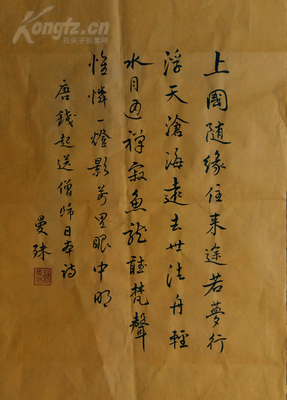 Kongfz.com
孔夫子旧书网
上國随緣住来途若夢行
浮天滄海遠去世法舟輕
水月通禅寂魚龍聴梵聲
惟憐一燈影万里眼中明
唐錢起送僧歸日本詩
曼殊